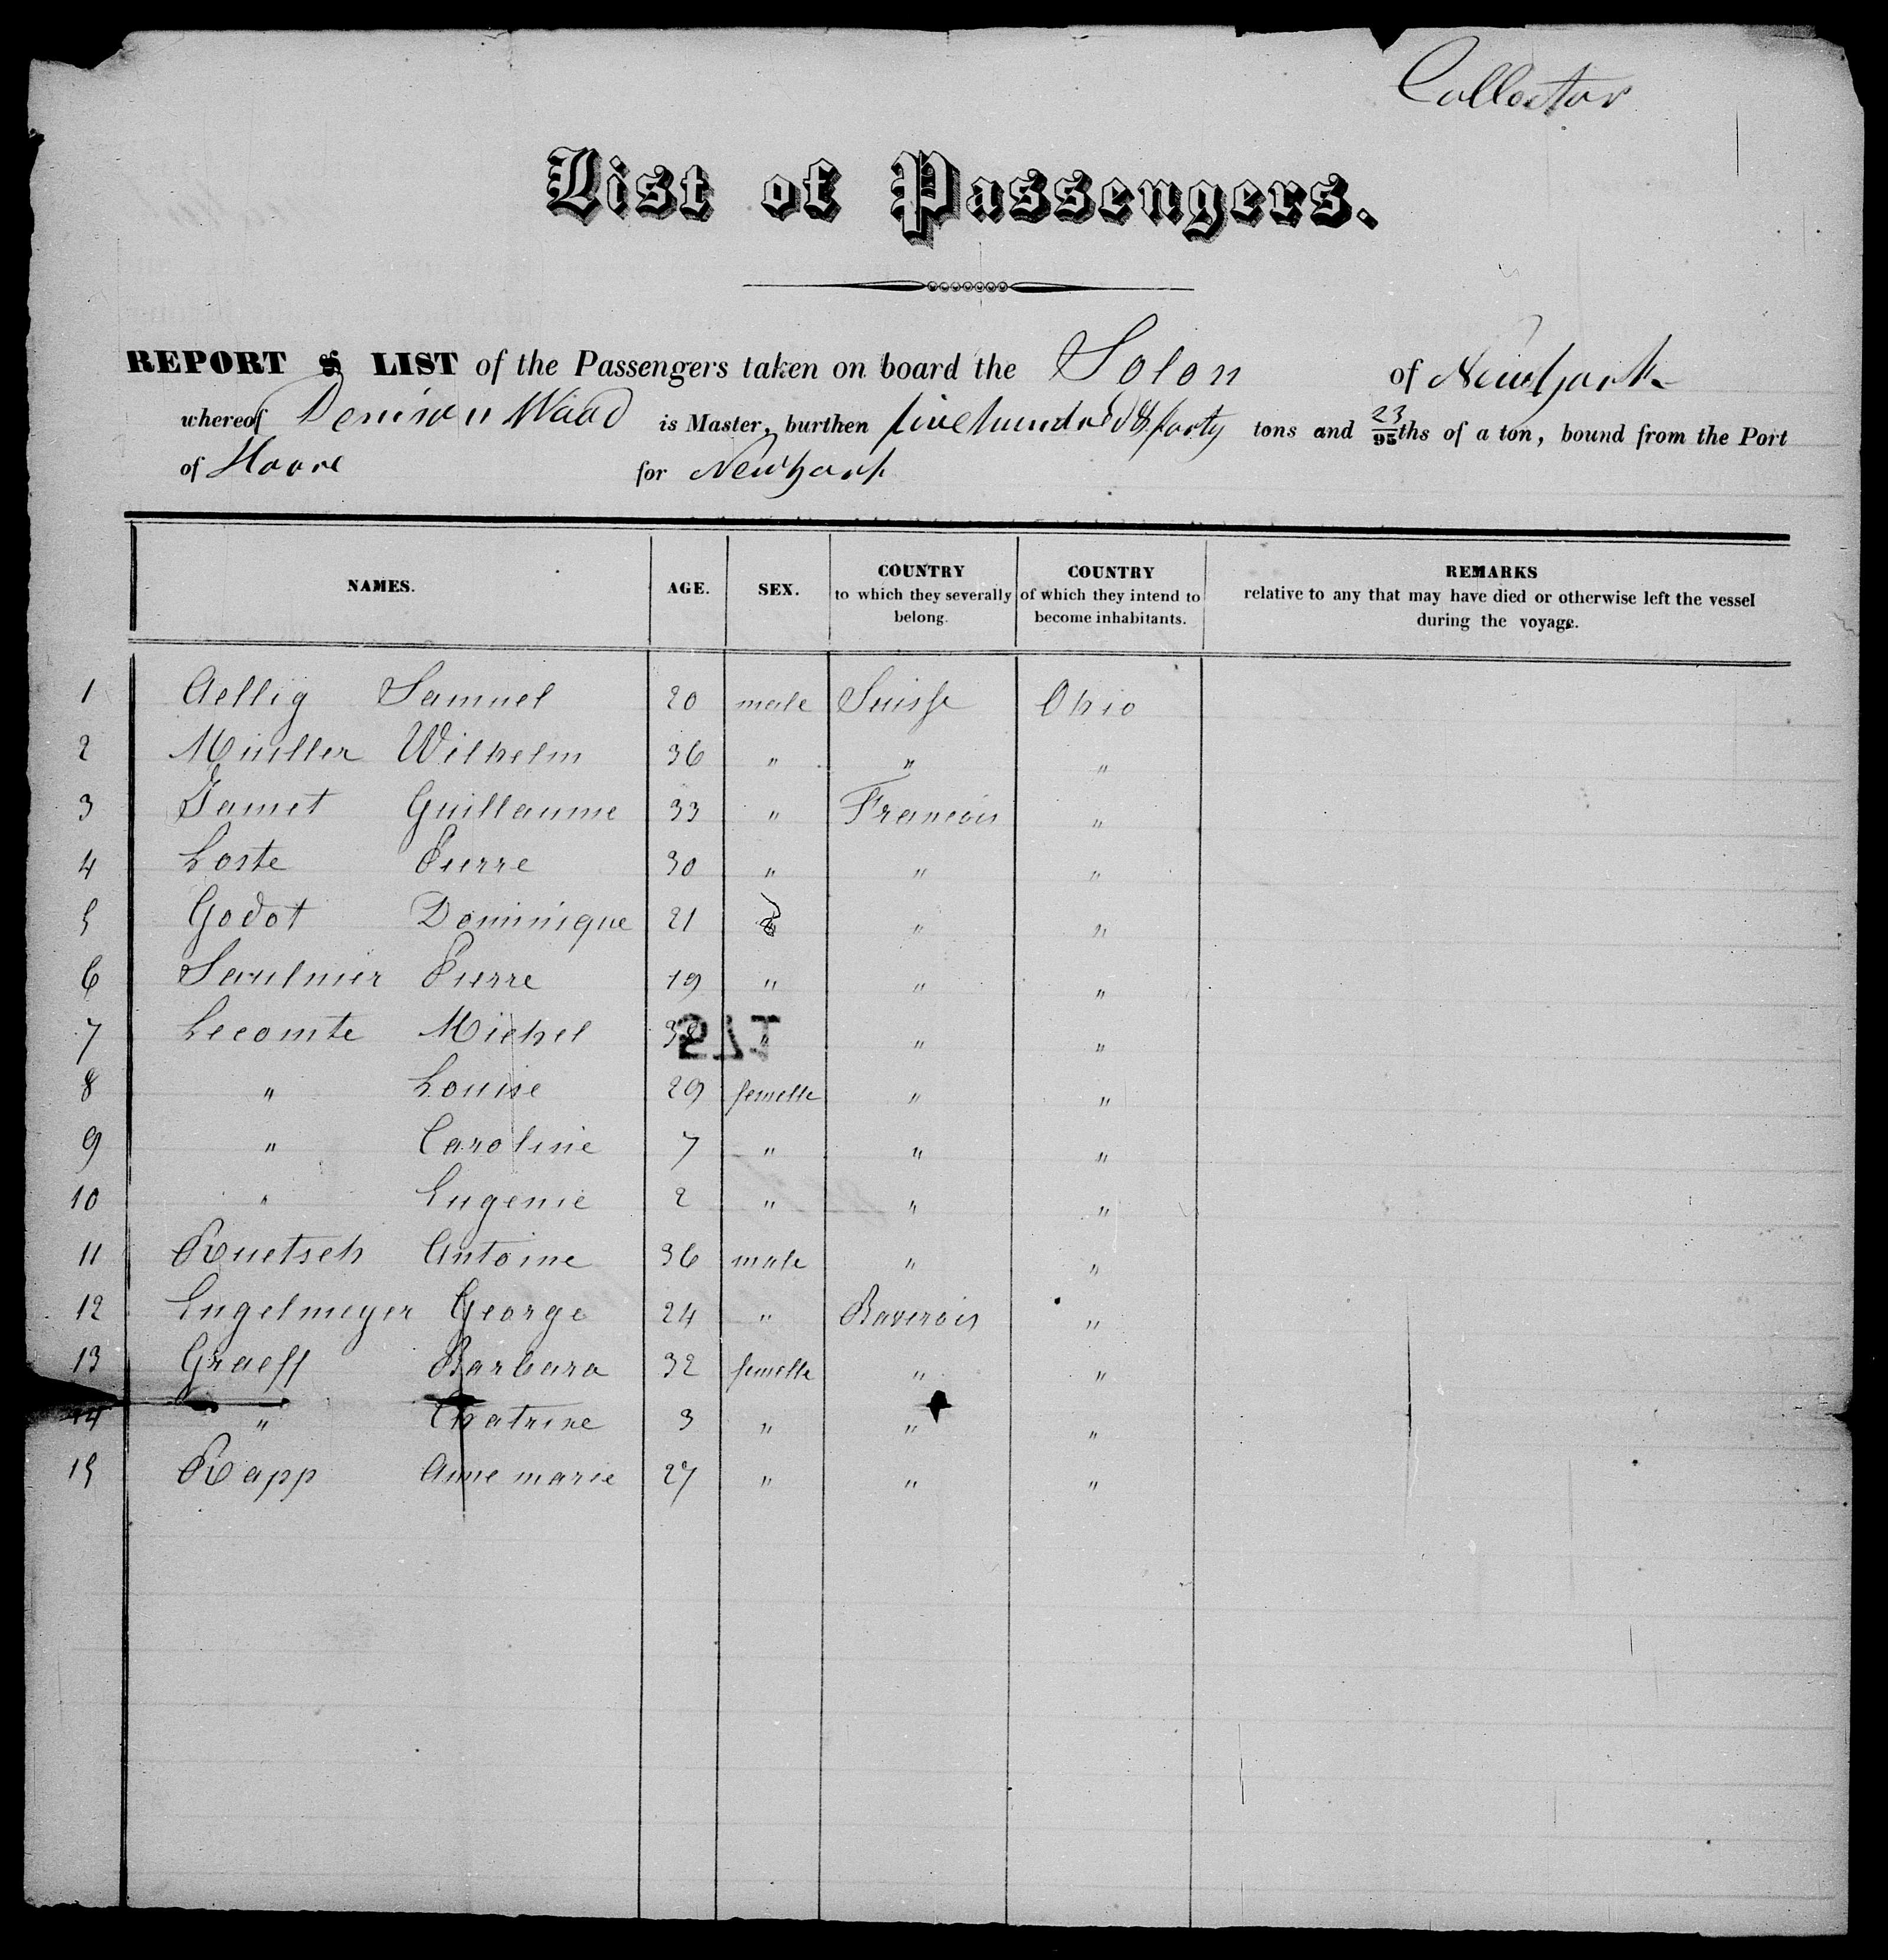 Collector
List of Passengers.
REPORT & LIST of the Passengers taken on board the Solon of New York
whereof Denison Wood is Master, burthen five hundred & forty tons and 23/95ths of a ton, bound from the Port
of Havre for New york
NAMES. AGE. SEX. COUNTRY to which they severally belong. COUNTRY of which they intend to become inhabitants. REMARKS relative to any that may have died or otherwise left the vessel during the voyage.
1 Aellig Samuel 20 male Suisse Ohio
2 Muller Wilhelm 36 " " "
3 Jamet Guillaume 33 " Francois "
4 Loste Pierre 30 " " "
5 Godot Dominique 21 " "
6 Saulnier Pierre 19 " " "
7 Lecomte Michel " " "
8 " Louise 29 femelle " "
9 " Caroline 7 " " "
10 " Eugenie 2 " " "
11 Ruetsch Antoine 36 male " "
12 Engelmeyer George 24 " Baverois "
13 Graeff Barbara 32 femelle " "
14 " Chatrine 3 " " "
15 Rapp Anne marie 27 " " "